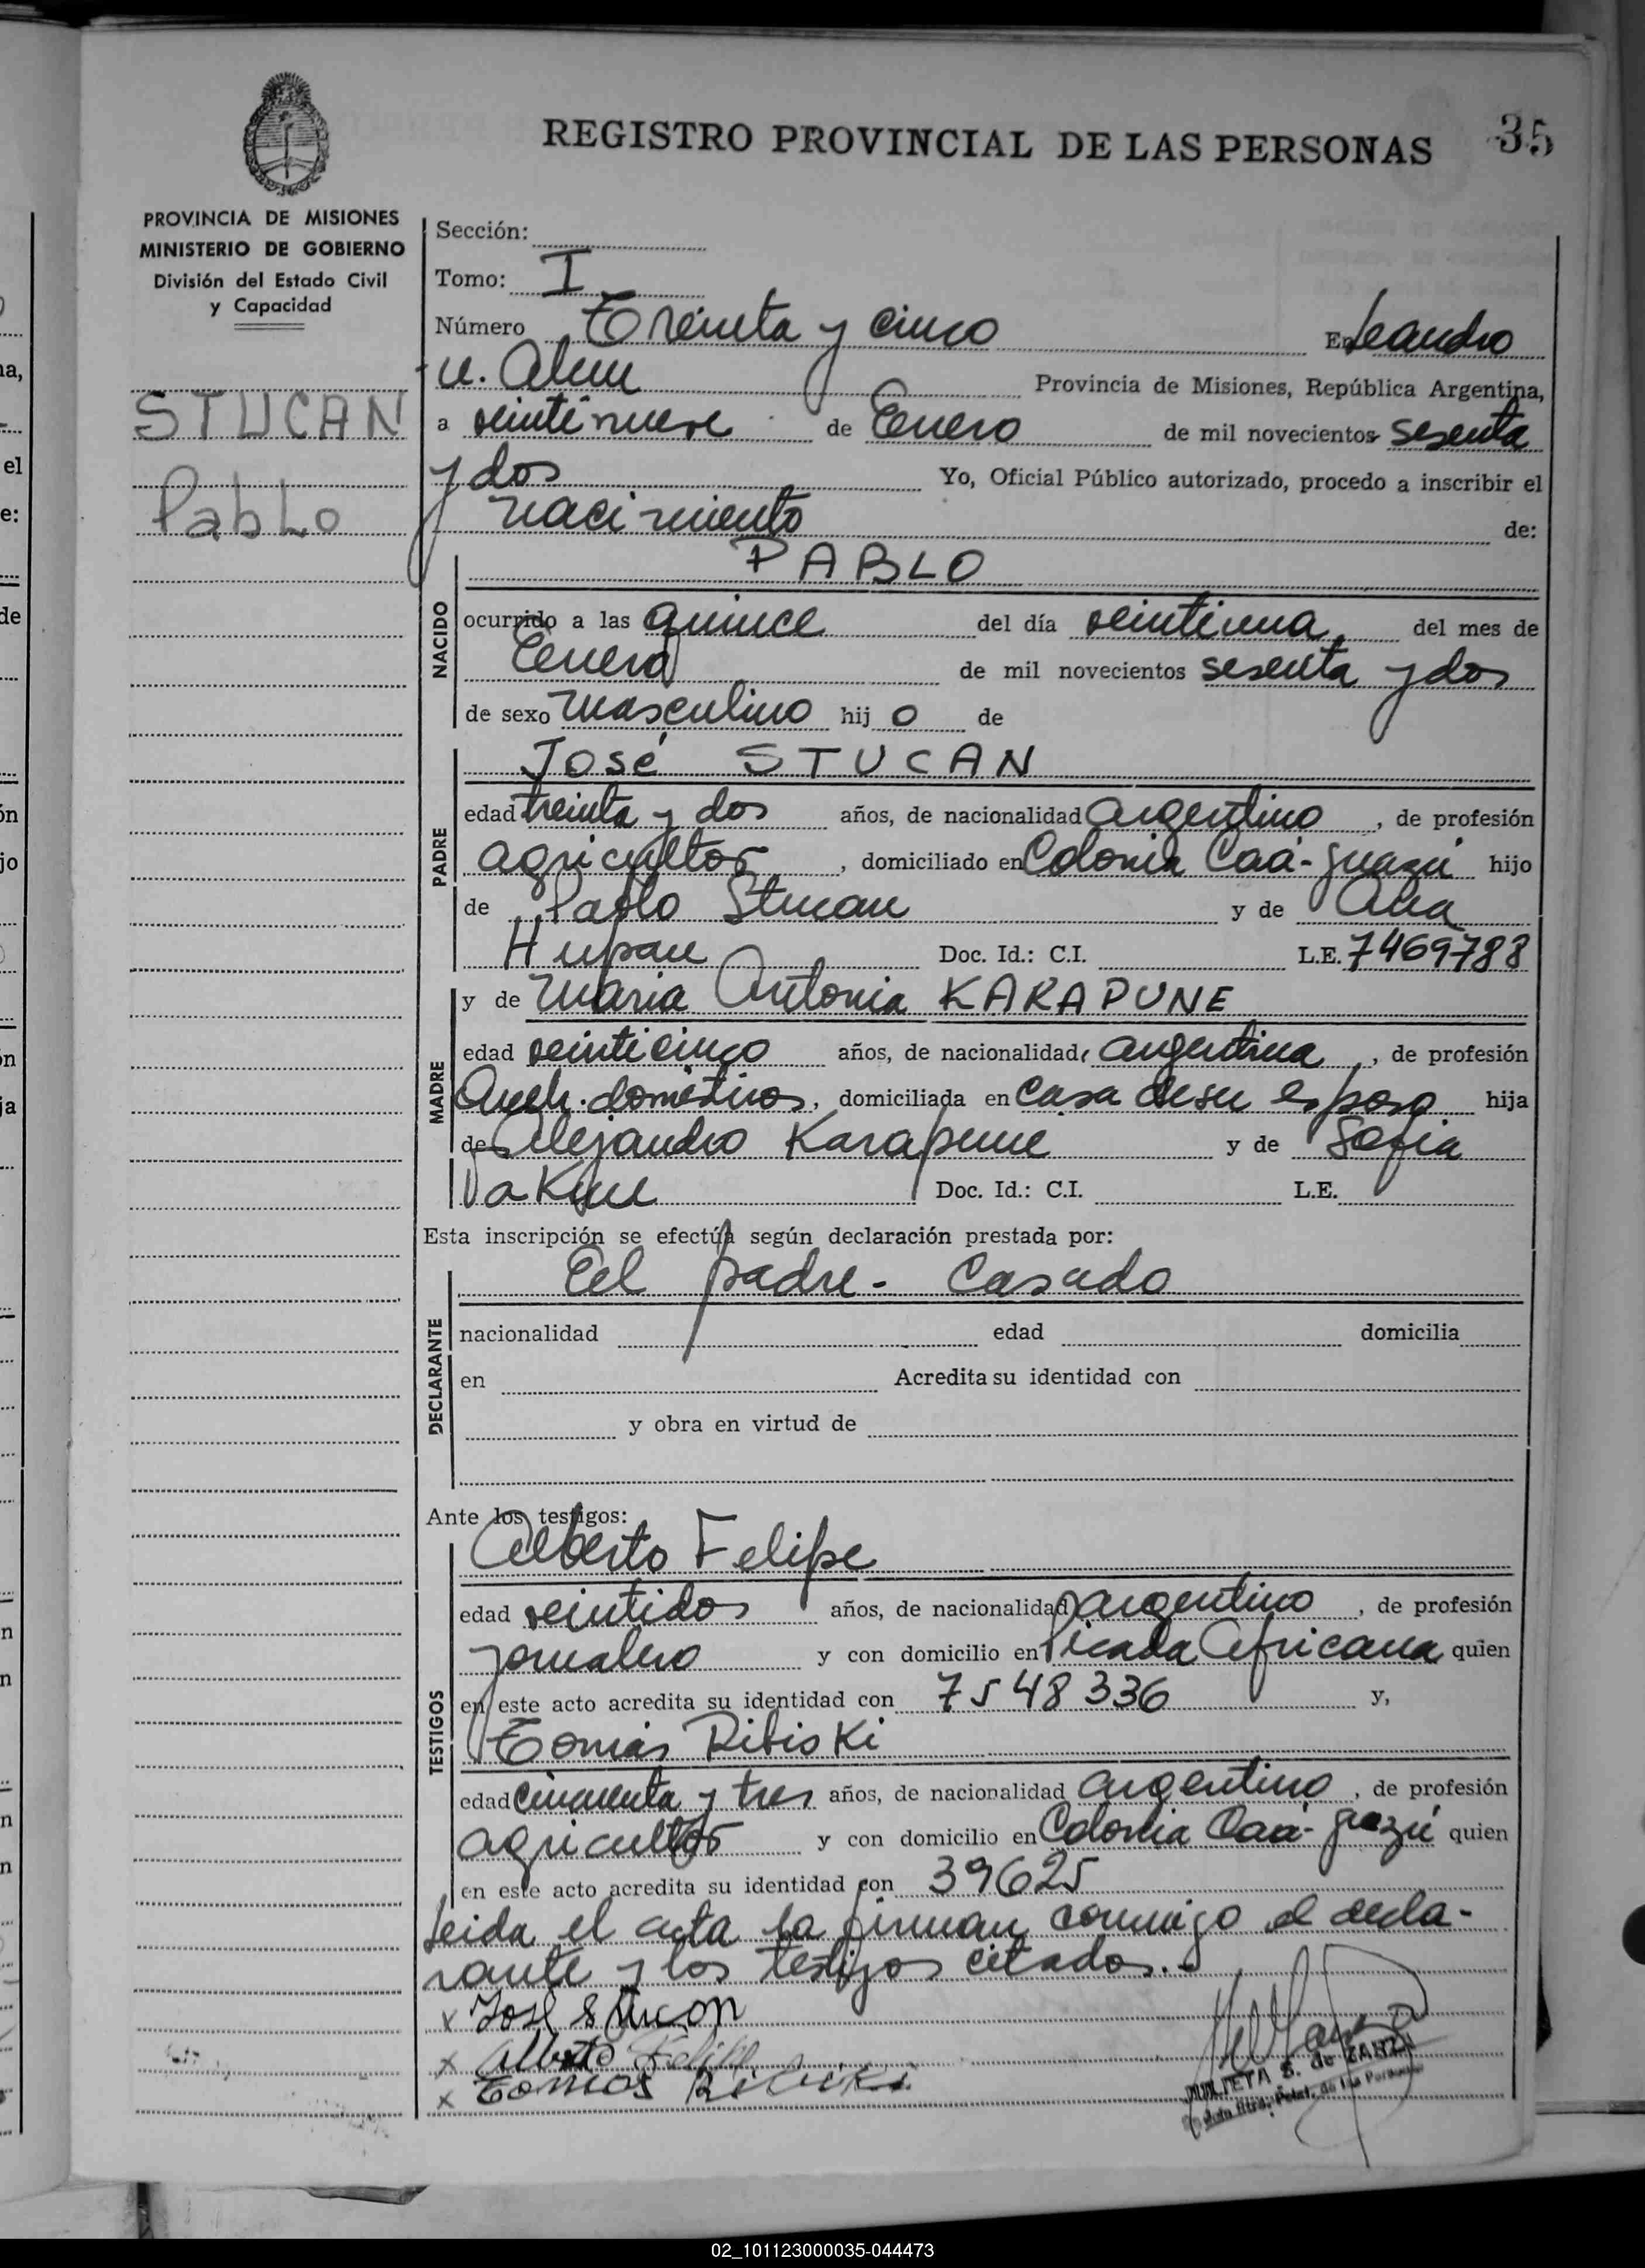 REGISTRO PROVINCIAL DE LAS PERSONAS 35
PROVINCIA DE MISIONES
MINISTERIO DE GOBIERNO
División del Estado Civil
y Capacidad
STUCAN
Pablo
Sección:
Tomo: I
Número Treinta y cinco En Leandro
N. Alem Provincia de Misiones, República Argentina,
a veintinueve de Enero de mil novecientos sesenta
y dos Yo, Oficial Público autorizado, procedo a inscribir el
nacimiento de:
NACIDO
PABLO
ocurrido a las quince del día veintiuna del mes de
Enero de mil novecientos sesenta y dos
de sexo masculino hijo de
PADRE
José STUCAN
edad treinta y dos años, de nacionalidad argentino, de profesión
agricultor, domiciliado en Colonia Caá-guazú hijo
de Pablo Stucan y de Ana
Hupau Doc. Id.: C.I. L.E. 7469788
MADRE
y de María Antonia KARAPUNE
edad veinticinco años, de nacionalidad argentina, de profesión
Queh. domésticos, domiciliada en Casa de su esposo hija
de Alejandro Karapune y de Sofia
Doc. Id.: C.I. L.E.
Esta inscripción se efectúa según declaración prestada por:
DECLARANTE
El padre - Casado
nacionalidad edad domicilia
en Acredita su identidad con
y obra en virtud de
Ante los testigos:
TESTIGOS
Alberto Felipe
edad veintidos años, de nacionalidad argentino, de profesión
jornalero y con domicilio en Picada Africana quien
en este acto acredita su identidad con 7548336 y,
Tomás Ribiski
edad cincuenta y tres años, de nacionalidad argentino, de profesión
agricultor y con domicilio en Colonia Caá-guazú quien
en este acto acredita su identidad con 39625
Leida el acta la firman conmigo el decla-
rante y los testigos citados.-
x José Stucon
x Alberto Felipe
x Tomas Ribiski
JULIETA S. de ZARZA
02_101123000035-044473